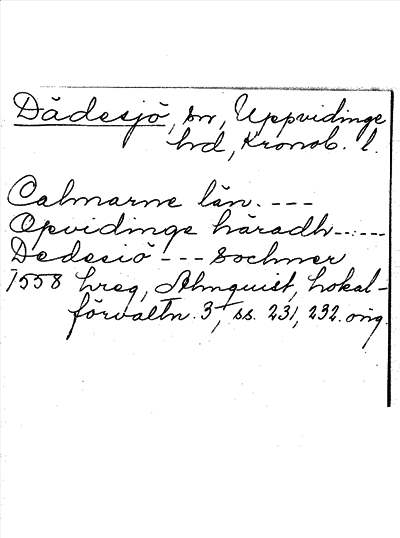 Dädesjö, sn, Uppvidinge
hd, Kronob. l.
Calmarne län. ---
Opvidinge häradh -----
Dedesiö --- Sochner
1558 hreg, Almquist, Lokal-
förvaltn. 3, ss. 231, 232. orig.